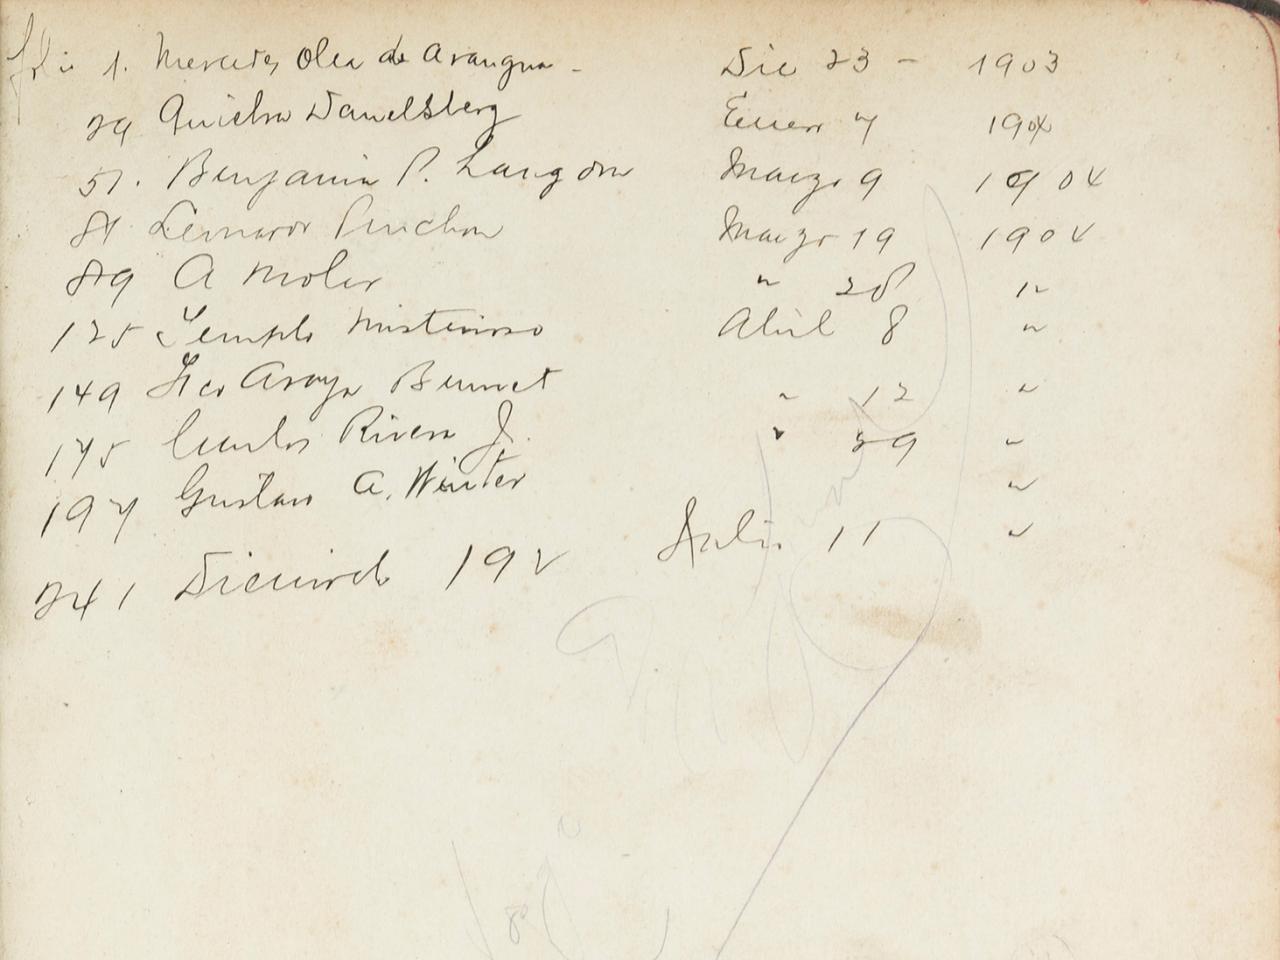 folio 1. Mercedes Olea de Arangua - Dic 23 - 1903
29 Danielsberg Enero 7 1904
51. Benjamin P. Langdon Marzo 9 1904
81 Leonardo Marzo 19 1904
89 A Moler " 28 "
125 Templo Misterioso Abril 8 "
149 Fco Araya Bennet " 12 "
175 Carlos Rivera J. " 29 "
197 Gustavo A. Winter "
241 192 Julio 11 "